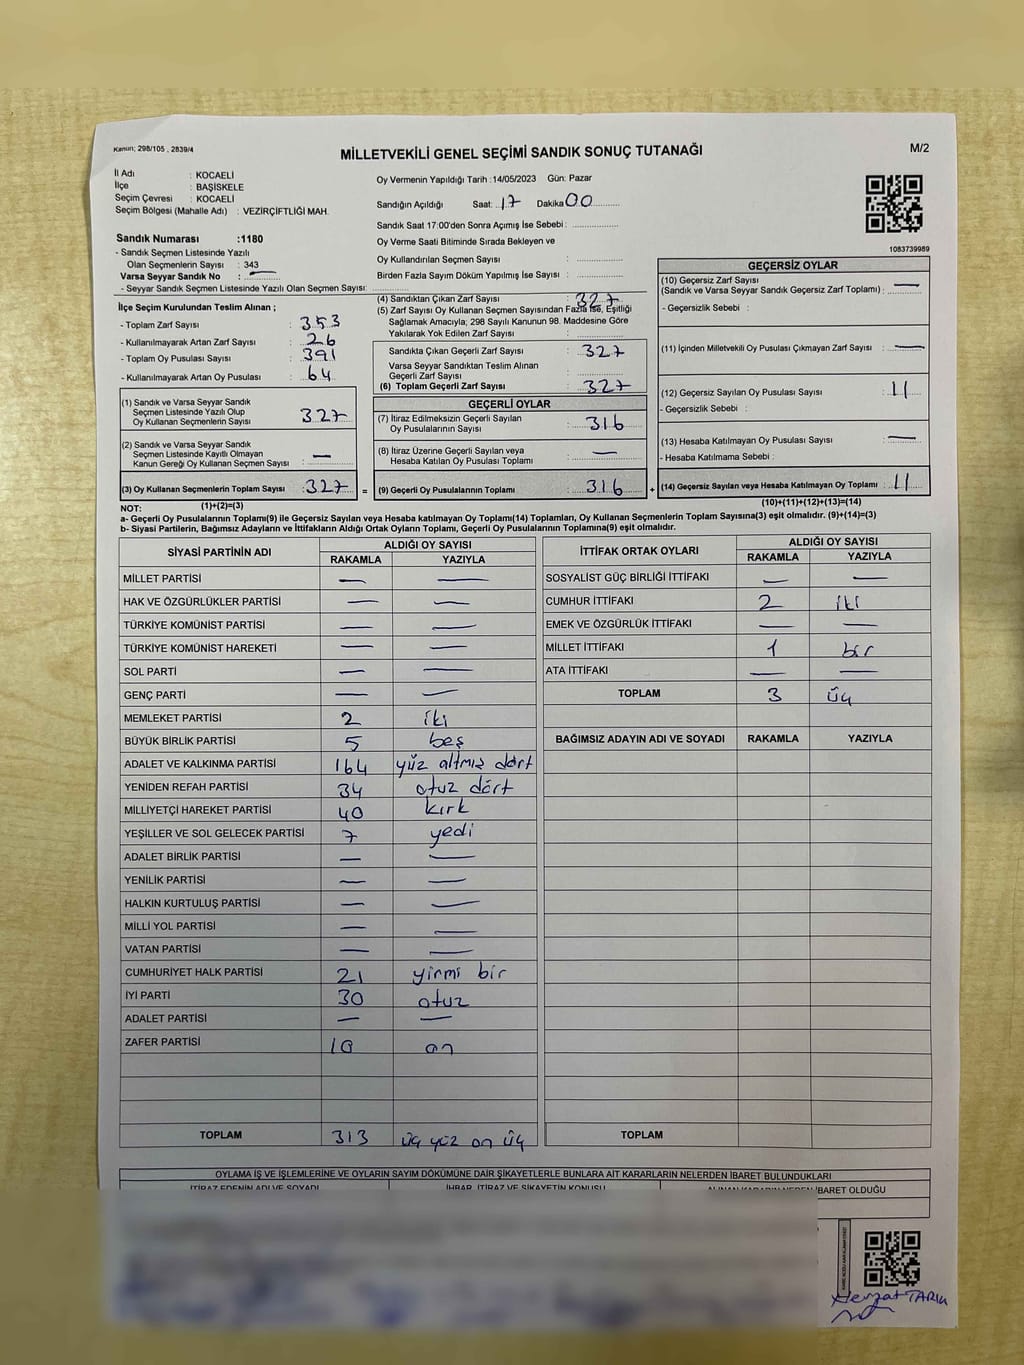 Kanun; 298/105 , 2839/4
MİLLETVEKİLİ GENEL SEÇİMİ SANDIK SONUÇ TUTANAĞI
M/2
İl Adı : KOCAELİ
İlçe : BAŞİSKELE
Seçim Çevresi : KOCAELİ
Seçim Bölgesi (Mahalle Adı) : VEZİRÇİFTLİĞİ MAH.
Sandık Numarası :1180
- Sandık Seçmen Listesinde Yazılı
Olan Seçmenlerin Sayısı : 343
Varsa Seyyar Sandık No : —
- Seyyar Sandık Seçmen Listesinde Yazılı Olan Seçmen Sayısı:
Oy Vermenin Yapıldığı Tarih :14/05/2023 Gün: Pazar
Sandığın Açıldığı Saat: 17 Dakika 00
Sandık Saat 17:00'den Sonra Açımış İse Sebebi :
Oy Verme Saati Bitiminde Sırada Bekleyen ve
Oy Kullandırılan Seçmen Sayısı :
Birden Fazla Sayım Döküm Yapılmış İse Sayısı :
1083739989
İlçe Seçim Kurulundan Teslim Alınan ;
- Toplam Zarf Sayısı : 353
- Kullanılmayarak Artan Zarf Sayısı : 26
- Toplam Oy Pusulası Sayısı : 391
- Kullanılmayarak Artan Oy Pusulası : 64
(1) Sandık ve Varsa Seyyar Sandık
Seçmen Listesinde Yazılı Olup
Oy Kullanan Seçmenlerin Sayısı : 327
(2) Sandık ve Varsa Seyyar Sandık
Seçmen Listesinde Kayıtlı Olmayan
Kanun Gereği Oy Kullanan Seçmen Sayısı : —
(3) Oy Kullanan Seçmenlerin Toplam Sayısı : 327 =
(4) Sandıktan Çıkan Zarf Sayısı : 327
(5) Zarf Sayısı Oy Kullanan Seçmen Sayısından Fazla İse, Eşitliği
Sağlamak Amacıyla; 298 Sayılı Kanunun 98. Maddesine Göre
Yakılarak Yok Edilen Zarf Sayısı :
Sandıkta Çıkan Geçerli Zarf Sayısı : 327
Varsa Seyyar Sandıktan Teslim Alınan
Geçerli Zarf Sayısı :
(6) Toplam Geçerli Zarf Sayısı : 327
GEÇERLİ OYLAR
(7) İtiraz Edilmeksizin Geçerli Sayılan
Oy Pusulalarının Sayısı : 316
(8) İtiraz Üzerine Geçerli Sayılan veya
Hesaba Katılan Oy Pusulası Toplamı : —
(9) Geçerli Oy Pusulalarının Toplamı : 316 +
GEÇERSİZ OYLAR
(10) Geçersiz Zarf Sayısı
(Sandık ve Varsa Seyyar Sandık Geçersiz Zarf Toplamı) : —
- Geçersizlik Sebebi :
(11) İçinden Milletvekili Oy Pusulası Çıkmayan Zarf Sayısı : —
(12) Geçersiz Sayılan Oy Pusulası Sayısı : 11
- Geçersizlik Sebebi :
(13) Hesaba Katılmayan Oy Pusulası Sayısı : —
- Hesaba Katılmama Sebebi :
(14) Geçersiz Sayılan veya Hesaba Katılmayan Oy Toplamı : 11
NOT: (1)+(2)=(3)
(10)+(11)+(12)+(13)=(14)
a- Geçerli Oy Pusulalarının Toplamı(9) ile Geçersiz Sayılan veya Hesaba katılmayan Oy Toplamı(14) Toplamları, Oy Kullanan Seçmenlerin Toplam Sayısına(3) eşit olmalıdır. (9)+(14)=(3)
b- Siyasi Partilerin, Bağımsız Adayların ve İttifakların Aldığı Ortak Oyların Toplamı, Geçerli Oy Pusulalarının Toplamına(9) eşit olmalıdır.
SİYASİ PARTİNİN ADI ALDIĞI OY SAYISI
RAKAMLA YAZIYLA
MİLLET PARTİSİ — —
HAK VE ÖZGÜRLÜKLER PARTİSİ — —
TÜRKİYE KOMÜNİST PARTİSİ — —
TÜRKİYE KOMÜNİST HAREKETİ — —
SOL PARTİ — —
GENÇ PARTİ — —
MEMLEKET PARTİSİ 2 iki
BÜYÜK BİRLİK PARTİSİ 5 beş
ADALET VE KALKINMA PARTİSİ 164 yüz altmış dört
YENİDEN REFAH PARTİSİ 34 otuz dört
MİLLİYETÇİ HAREKET PARTİSİ 40 kırk
YEŞİLLER VE SOL GELECEK PARTİSİ 7 yedi
ADALET BİRLİK PARTİSİ — —
YENİLİK PARTİSİ — —
HALKIN KURTULUŞ PARTİSİ — —
MİLLİ YOL PARTİSİ — —
VATAN PARTİSİ — —
CUMHURİYET HALK PARTİSİ 21 yirmi bir
İYİ PARTİ 30 otuz
ADALET PARTİSİ — —
ZAFER PARTİSİ 10 on
TOPLAM 313 üç yüz on üç
İTTİFAK ORTAK OYLARI ALDIĞI OY SAYISI
RAKAMLA YAZIYLA
SOSYALİST GÜÇ BİRLİĞİ İTTİFAKI — —
CUMHUR İTTİFAKI 2 iki
EMEK VE ÖZGÜRLÜK İTTİFAKI — —
MİLLET İTTİFAKI 1 bir
ATA İTTİFAKI — —
TOPLAM 3 üç
BAĞIMSIZ ADAYIN ADI VE SOYADI RAKAMLA YAZIYLA
TOPLAM
OYLAMA İŞ VE İŞLEMLERİNE VE OYLARIN SAYIM DÖKÜMÜNE DAİR ŞİKAYETLERLE BUNLARA AİT KARARLARIN NELERDEN İBARET BULUNDUKLARI
İTİRAZ EDENİN ADI VE SOYADI İHBAR, İTİRAZ VE ŞİKAYETİN KONUSU ALINAN KARARIN NEDEN İBARET OLDUĞU
TARIK